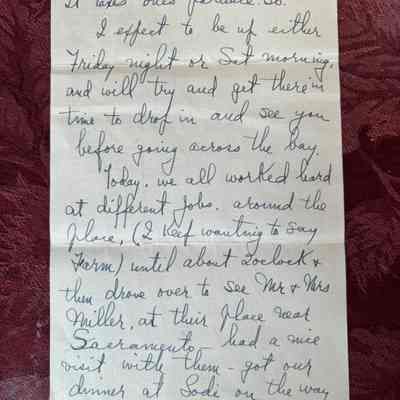 It takes ones patience. So.
I expect to be up either
Friday night or Sat morning,
and will try and get there in
time to drop in and see you
before going across the bay.
Today, we all worked hard
at different jobs. around the
place, (I keep wanting to say
Farm) until about 2oclock &
then drove over to see Mr & Mrs
Miller, at their place near
Sacramento - had a nice
visit with them - got our
dinner at Lodi on the way